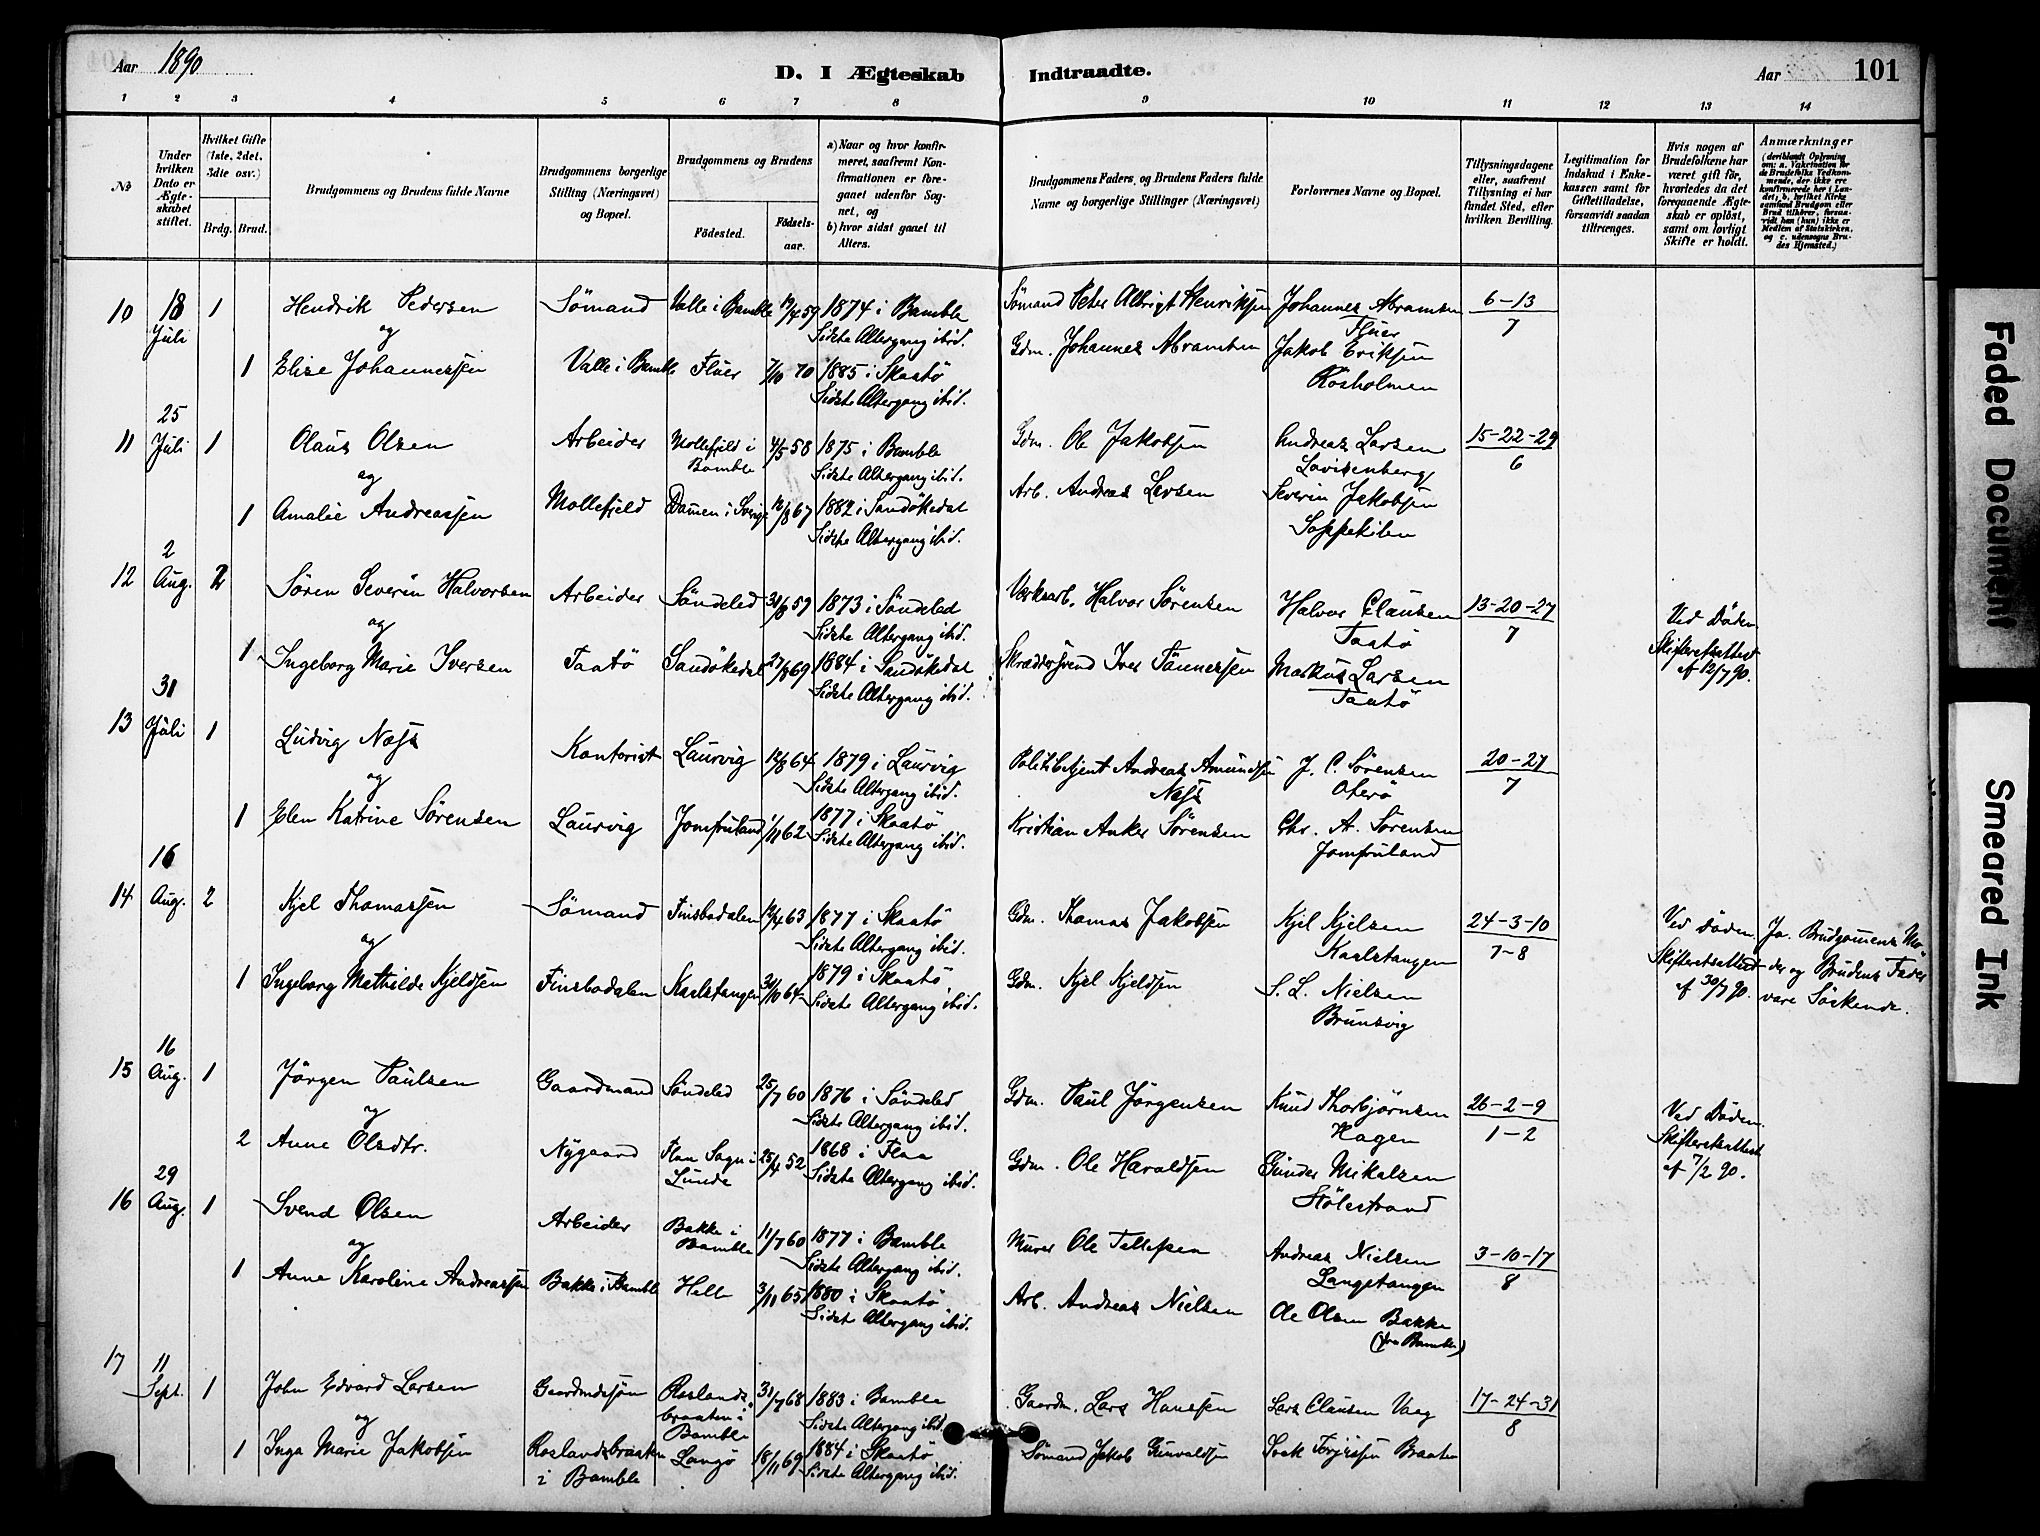 Aar 1890
D. I Ægteskab Indtraadte.
Aar 101
1 2 3 4 5 6 7 8 9 10 11 12 13 14
No
Under hvilken Dato er Ægteskabet stiftet.
Hvilket Gifte (1ste, 2det, 3die osv.)
Brdg. Brud.
Brudgommens og Brudens fulde Navne
Brudgommens borgerlige Stilling (Næringsvei) og Bopæl.
Brudgommens og Brudens
Födested.
Födselsaar.
a) Naar og hvor konfirmeret, saafremt Konfirmationen er foregaaet udenfor Sognet, og
b) hvor sidst gaaet til Alters.
Brudgommens Faders og Brudens Faders fulde Navne og borgerlige Stillinger (Næringsvei)
Forlovernes Navne og Bopæl.
Tillysningsdagene eller, saafremt Tillysning ei har fundet Sted, efter hvilken Bevilling.
Legitimation for Indskud i Enkekassen samt for Giftetilladelse, forsaavidt saadan tiltrænges.
Hvis nogen af Brudefolkene har været gift før, hvorledes da det foregaaende Ægteskab er oplöst, samt om lovligt Skifte er holdt.
Anmærkninger
(deriblandt Oplysning om: a. Vakcination for de Brudefolks Vedkommende, der ikke ere konfirmerede her i Landet; b. hvilket Kirkesamfund Brudgom eller Brud tilhörer, forsaavidt han (hun) ikke er Medlem af Statskirken, og c. udensogns Brudes Hjemsted.)
10 18 Juli 1 Hendrik Pedersen Sömand Valle i Bamble 19/4 59 1874 i Bamble Sömand Peter Albrigt Henriksen Johannes Abramsen 6-13/7
og Sidste Altergang ibid. Fluer
1 Elise Johannessen Valle i Bamble Fluer 7/10 70 1885 i Skaatö Gdm. Johannes Abramsen Jakob Eriksen
Sidste Altergang ibid. Rosholmen
11 25 Juli 1 Olaus Olsen Arbeider Mollefjeld i Bamble 4/5 58 1875 i Bamble Gdm. Ole Jakobsen Andreas Larsen 15-22-29/6
og Sidste Altergang ibid. Lovisenberg
1 Amalie Andreassen Mollefjeld i Sverige 12/8 67 1882 i Sandökedal Arb. Andreas Severin Jakobsen
Sidste Altergang ibid. Soppekilen
12 2 Aug. 2 Sören Severin Halvorsen Arbeider Söndeled 59 1873 i Söndeled Halvor Sörensen Halvor Clausen 13-20-27/7 Ved Döden.
og Sidste Altergang ibid. Taatö Skifteretsattest
1 Ingeborg Marie Iversen Taatö Sandökedal 27/8 69 1884 i Sandökedal Skræddersvend Iver Tönnessen Markus Larsen af 12/7 90.
Sidste Altergang ibid. Taatö
13 31 Juli 1 Ludvig Næss Kontorist Laurvig 12/8 64 1879 i Laurvig Politibetjent Andreas Amundsen J. C. Sörensen 20-27/7
og Sidste Altergang ibid. Næss Oterö
1 Elen Katrine Sörensen Laurvig Jomfruland 1/11 62 1877 i Skaatö Kristian Anker Sörensen Chr. A. Sörensen
Sidste Altergang ibid. Jomfruland
14 16 Aug. 2 Kjel Thomassen Sömand Finsbudalen 12/4 63 1877 i Skaatö Gdm. Thomas Jakobsen Kjel Kjelsen 24-3-10/7-8 Ved Döden. Ja. Brudgomens Mo
og Sidste Altergang ibid. Karlstangen Skifteretsattest der og Brudens Fader
1 Ingeborg Mathilde Kjeldsen Finsbudalen Karlstangen 64 1879 i Skaatö Gdm. Kjel Kjeldsen S. L. Nielsen af 30/7 90. vare Söskende.
Sidste Altergang ibid. Brunsvig
15 16 Aug. 1 Jörgen Paulsen Gaardmand Söndeled 25/7 60 1876 i Söndeled Gdm. Paul Jörgensen Knud Thorbjörnsen 26-2-9/1-2 Ved Döden.
og Sidste Altergang ibid. Hagen Skifteretsattest
2 Anne Olsdtr. Nygaard Flaa Sogn i Lunde 25/4 52 1868 i Flaa Gdm. Ole Haraldsen Gunder Mikalsen af 7/2 90.
Sidste Altergang ibid. Stölestrand
16 29 Aug. 1 Svend Olsen Arbeider Bakke i Bamble 11/7 60 1877 i Bamble Murer Ole Tellefsen Andreas Nielsen 3-10-17/8
og Sidste Altergang ibid. Langstangen
1 Anne Karoline Andreassen Bakke i Bamble Helle 3/11 65 1880 i Skaatö Arb. Andreas Nielsen Ole Olsen Bakke
Sidste Altergang ibid. (fra Bamble)
17 11 Sept. 1 John Edvard Larsen Gaardmdssön Roslandsbraaten i Bamble 31/7 68 1883 i Bamble Gaardm. Lars Hansen Lars Clausen Vaag 17-24-31/8
og Sidste Altergang ibid.
1 Inga Marie Jakobsen Roslandsbraaten i Bamble Langö 18/11 69 1884 i Skaatö Sömand Jakob Gunvaldsen Braaten
Sidste Altergang ibid.
Faded Document
Smeared Ink